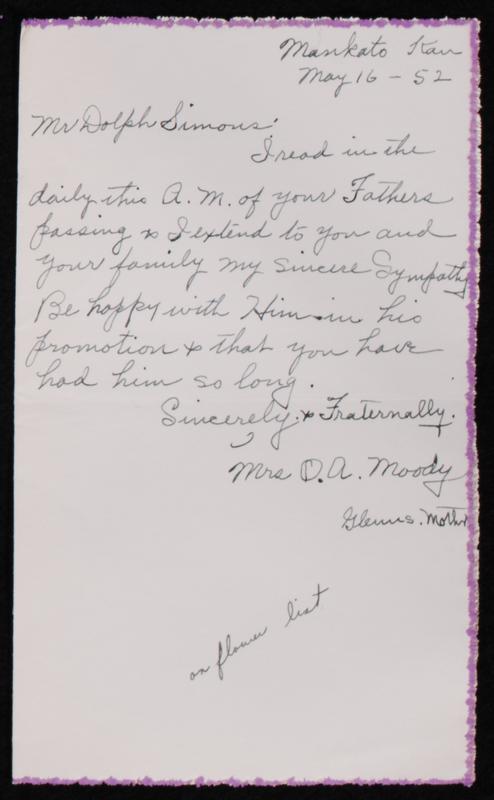 Mankato Kan
May 16 - 52
Mr Dolph Simons:
I read in the
daily this A.M. of your Fathers
passing & I extend to you and
your family my sincere Sympathy
Be happy with Him in his
promotion & that you have
had him so long.
Sincerely & Fraternally.
Mrs O. A. Moody
Glenns. Mother
on flower list